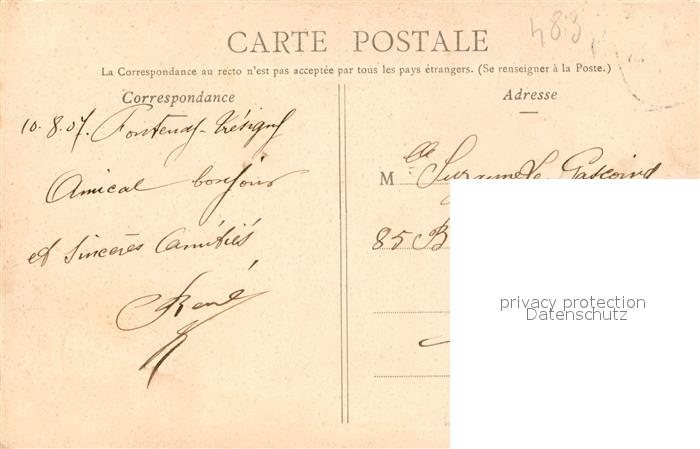 483
CARTE POSTALE
La Correspondance au recto n'est pas acceptée par tous les pays étrangers. (Se renseigner à la Poste.)
Correspondance
10.8.07. Fontenay-Trésigny
Amical bonjour
et Sincères Amitiés
René
Adresse
Mlle Suzanne Le Gascoing
85 B
privacy protection
Datenschutz